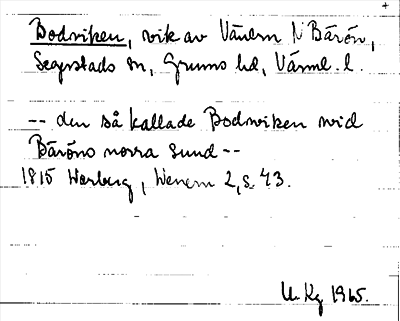 +
Bodviken, vik av Vänern N Bärön,
Segerstads sn, Grums hd, Värml. l.
-- den så kallade Bodwiken wid
Bäröns norra sund --
1815 Warberg, Wenern 2, s. 43.
1965.